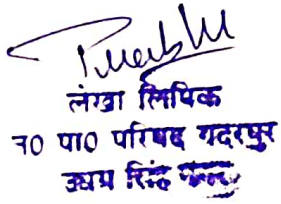 लेखा लिपिक
न0 पा0 परिषद गदरपुर
उधम सिंह नगर